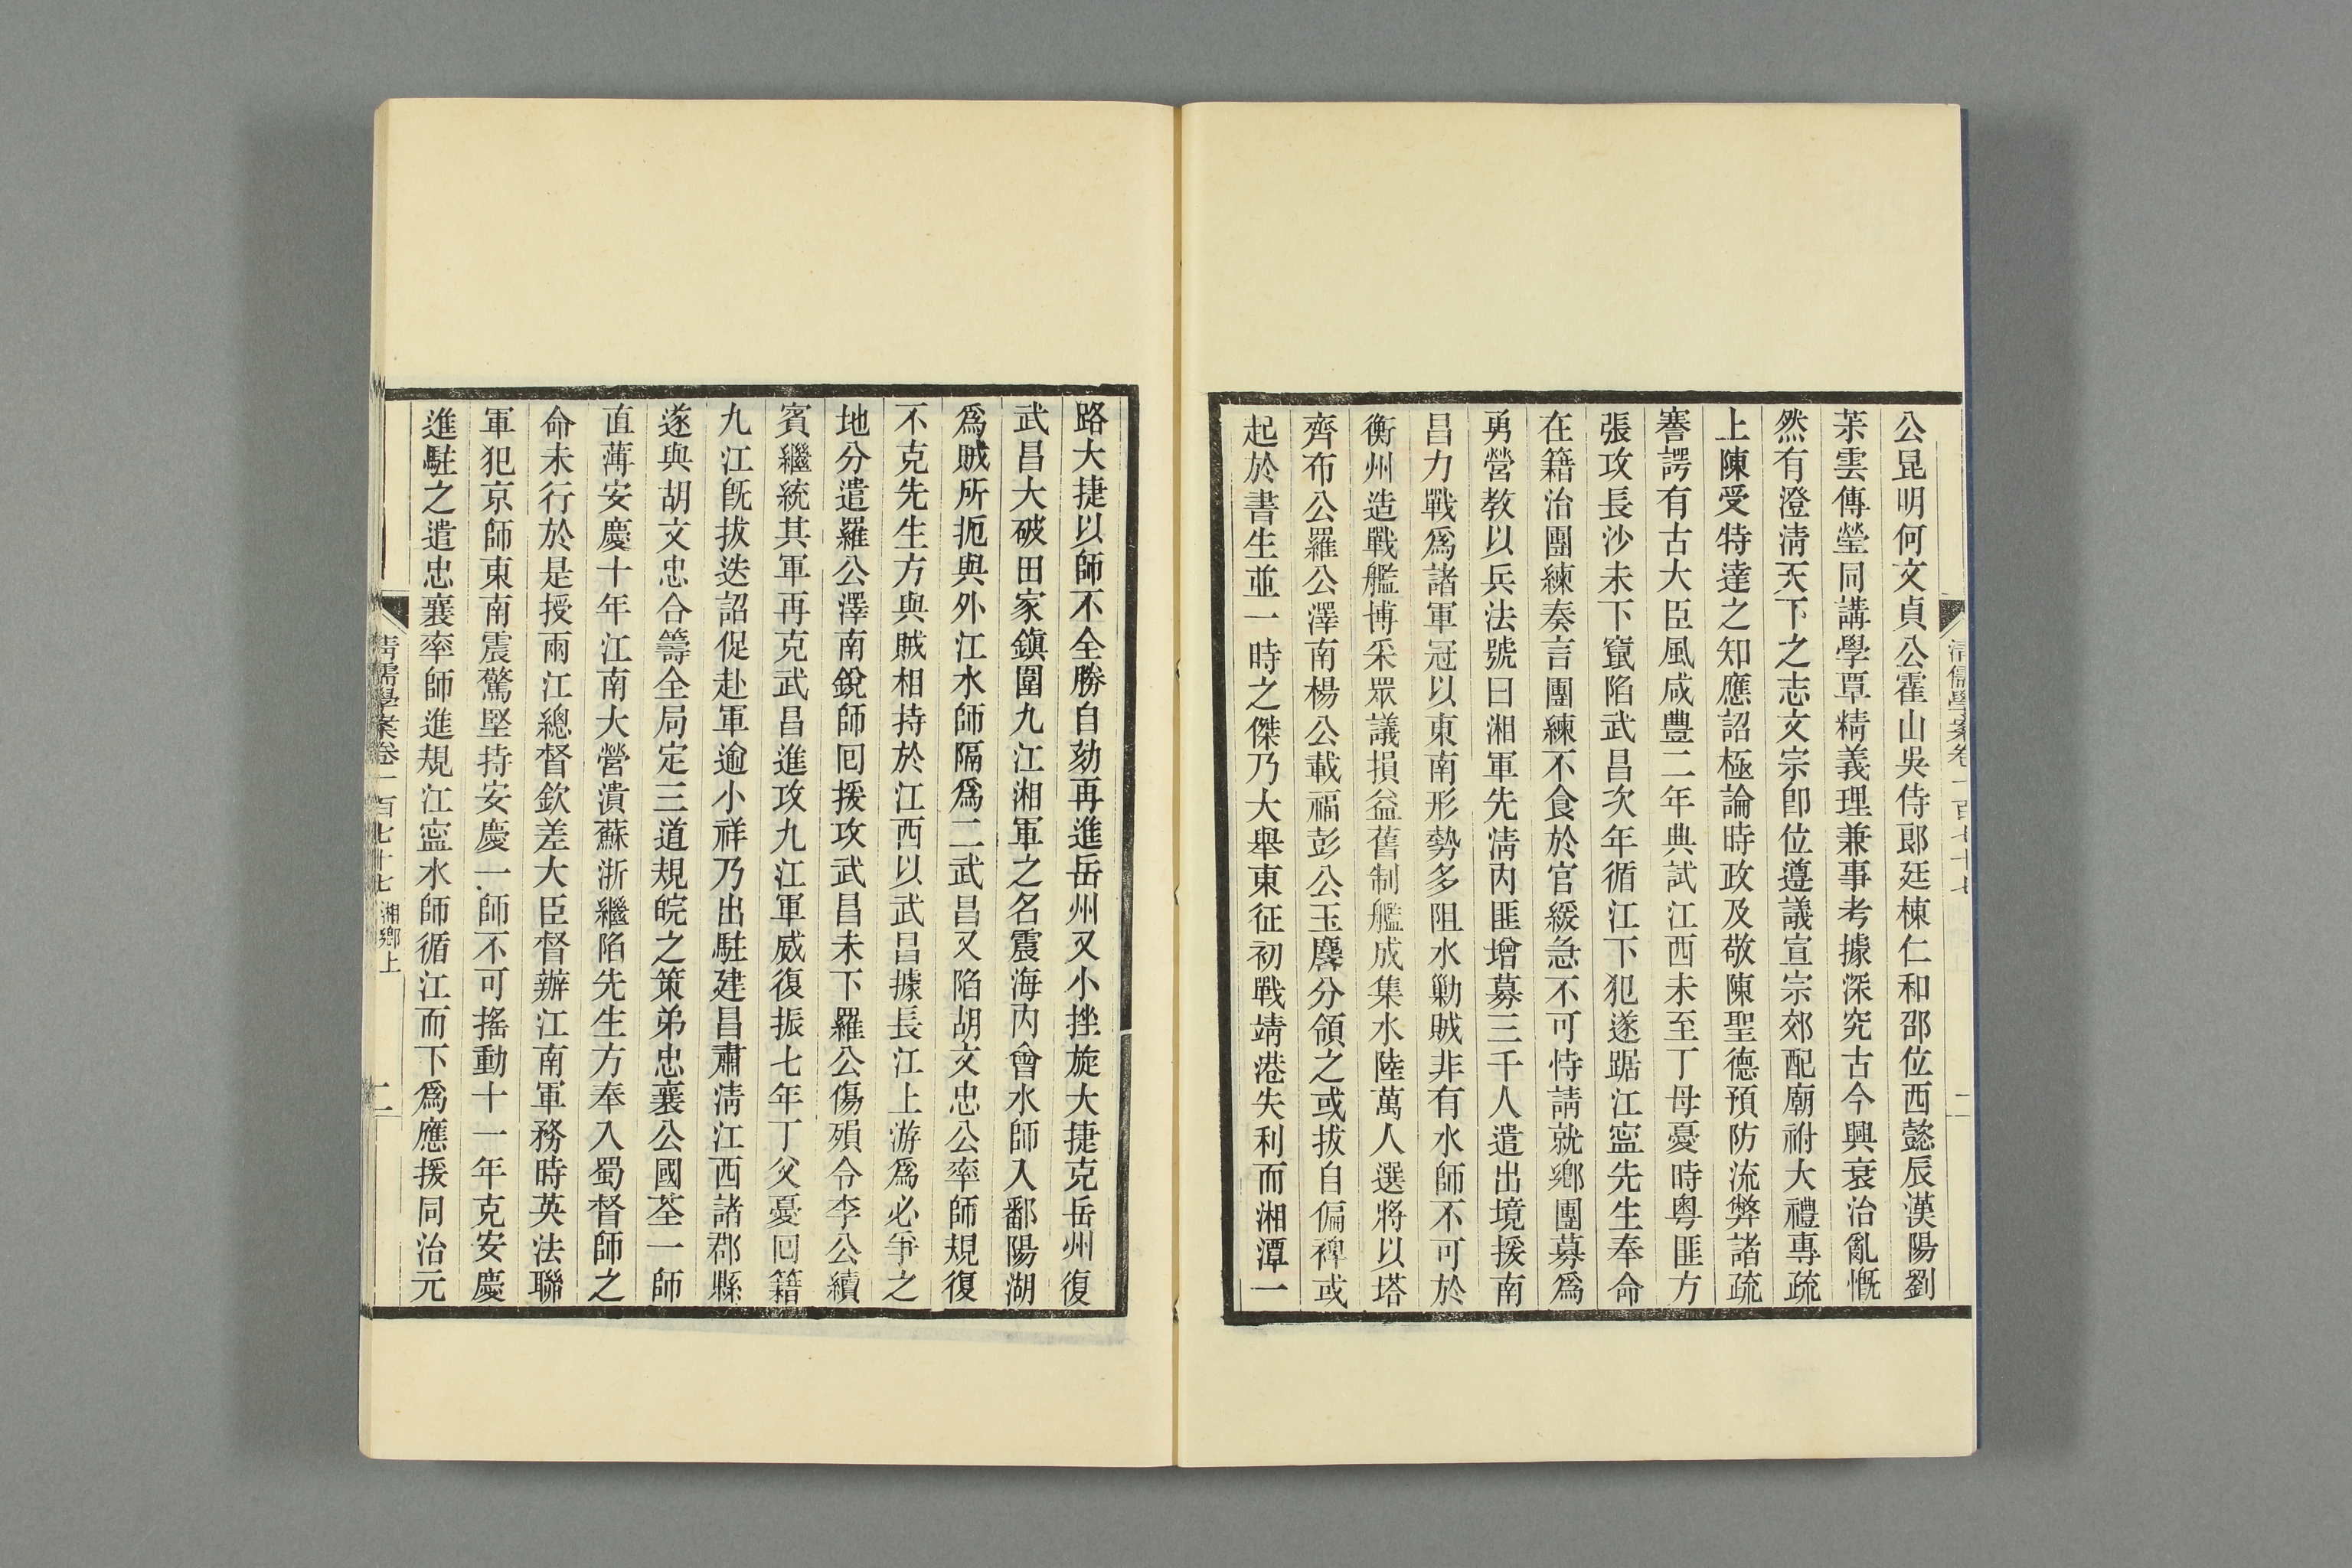 公昆明何文貞公霍山吳侍郞廷棟仁和邵位西懿辰漢陽劉
茮雲傳瑩同講學覃精義理兼事考據深究古今興衰治亂慨
然有澄淸天下之志文宗卽位遵議宣宗郊配廟祔大禮專疏
上陳受特達之知應詔極論時政及敬陳聖德預防流弊諸疏
謇諤有古大臣風咸豐二年典試江西未至丁母憂時粵匪方
張攻長沙未下竄陷武昌次年循江下犯遂踞江寍先生奉命
在籍治團練奏言團練不食於官緩急不可恃請就鄕團募爲
勇營教以兵法號曰湘軍先淸內匪增募三千人遣出境援南
昌力戰爲諸軍冠以東南形勢多阻水勦賊非有水師不可於
衡州造戰艦博采眾議損益舊制艦成集水陸萬人選將以塔
齊布公羅公澤南楊公載福彭公玉麐分領之或拔自偏裨或
起於書生並一時之傑乃大舉東征初戰靖港失利而湘潭一
路大捷以師不全勝自劾再進岳州又小挫旋大捷克岳州復
武昌大破田家鎭圍九江湘軍之名震海內會水師入鄱陽湖
爲賊所扼與外江水師隔爲二武昌又陷胡文忠公率師規復
不克先生方與賊相持於江西以武昌據長江上游爲必爭之
地分遣羅公澤南銳師回援攻武昌未下羅公傷殞令李公續
賓繼統其軍再克武昌進攻九江軍威復振七年丁父憂回籍
九江旣拔迭詔促赴軍逾小祥乃出駐建昌肅淸江西諸郡縣
遂與胡文忠合籌全局定三道規皖之策弟忠襄公國荃一師
直薄安慶十年江南大營潰蘇浙繼陷先生方奉入蜀督師之
命未行於是授兩江總督欽差大臣督辦江南軍務時英法聯
軍犯京師東南震驚堅持安慶一師不可搖動十一年克安慶
進駐之遣忠襄率師進規江寍水師循江而下爲應援同治元
淸儒學案卷一百七十七 湘鄕上 二